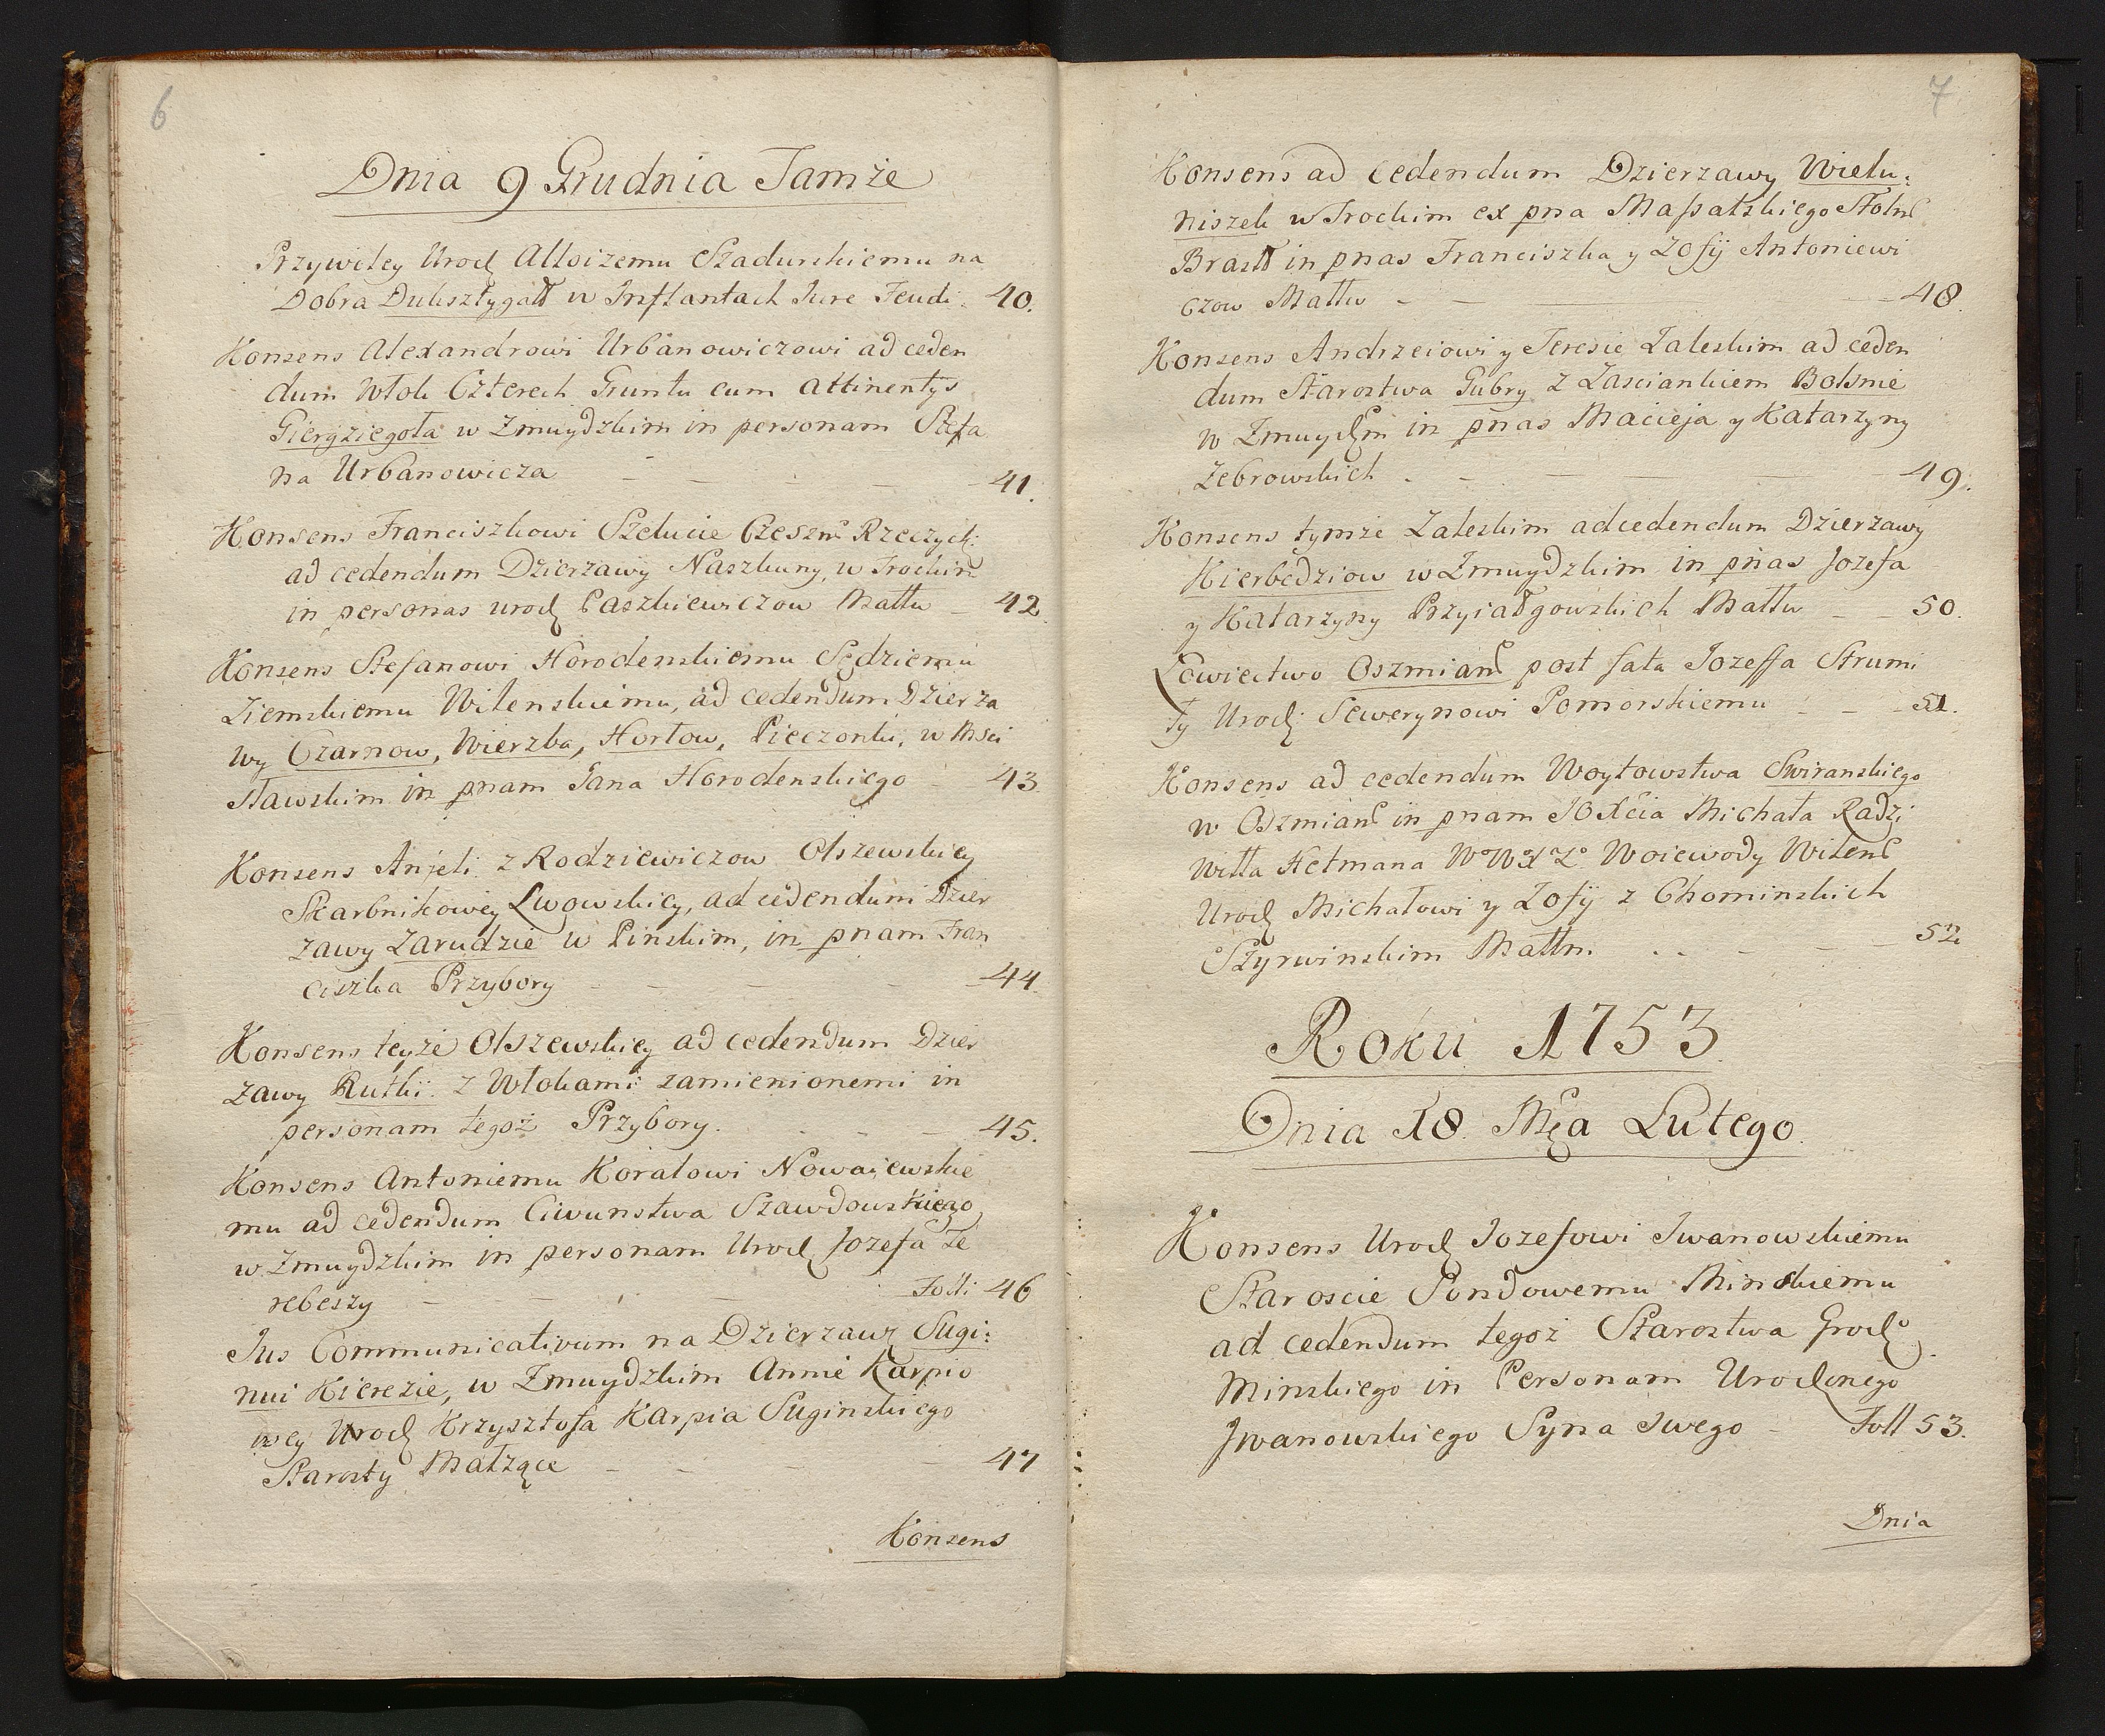 6
Dnia 9 Grudnia Tamże
Przywiley Urodz Alloizemu Szadurskiemu na
Dobra Dubsztygall w Inflantach Jure Feudi. 40.
Konsens Alexandrowi Urbanowiczowi ad ceden
dum Włok Czterech Gruntu cum attinentys
Giergziegoła w Zmuydzkim in personam Stefa
na Urbanowicza - - - - 41.
Konsens Franciszkowi Szelucie Czesznᵒ Rzeczyck:
ad cedendum Dzierzawy Naszkuny, w Trockim
in personas urodz Paszkiewiczow Małłw - 42.
Konsens Stefanowi Horodenskiemu Sędziemu
Ziemskiemu Wilenskiemu, ad cedendum Dzierza
wy Czarnow, Wierzba, Hortow, Pieczonki, w Mści
sławskim in pnam Jana Horodenskiego - 43.
Konsens Anjeli z Rodziewiczow Olszewskiey
Skarbnikowey Lwowskiey, ad cedendum Dzier
zawy Zarudzie w Pinskim, in pnam Fran
ciszka Przybory - - - - 44.
Konsens teyże Olszewskiey ad cedendum Dzier
zawy Rutki z Włokami zamienionemi in
personam tegoż Przybory. - - - 45.
Konsens Antoniemu Koralowi Nowaiewskie
mu ad cedendum Ciwunstwa Szawdowskiego
w Zmuydzkim in personam Urodz Jozefa Be
rebeszy - - - Folli 46
Jus Communicativum na Dzierzawę Sugi:
nui Kierezie, w Zmuydzkim Annie Karpio
wey Urodz Krzysztofa Karpia Suginskiego
Starosty Małżące - - - 47
Konsens
7
Konsens ad cedendum Dzierzawy Wielu:
niszek w Trockim ex pna Massalskiego Stolnᶜ
Brasłł in pnas Franciszka y Zofij Antoniewi
czow Małłw - - - 48.
Konsens Andrzeiowi y Teresie Zaleskim ad ceden
dum Starostwa Gubry z Zasciankiem Bolsnie
w Zmuydzm in pnas Macieja y Katarzyny
Żebrowskich . - - - 49.
Konsens tymże Zaleskim ad cedendum Dzierzawy
Kierbedziow w Zmuydzkim in pnas Jozefa
y Katarzyny Przyiałgowskich Małłw - - 50.
Łowiectwo Oszmianᶜ post fata Jozeffa Strumi
ły Urodz: Sewerynowi Pomorskiemu - - - 51.
Konsens ad cedendum Woytowstwa Swiranskiego
w Oszmianᶜ in pnam JOXcia Michała Radzi
wiłła Hetmana WᵒWXLᵒ Woiewody Wilenᶜ
Urodz Michałowi y Zofij z Chominskich
Szyrwinskim Małłm. . . - - - 52
Roku 1753.
Dnia 18. Mca Lutego.
Konsens Urodz Jozefowi Iwanowskiemu
Staroscie Sondowemu Minskiemu
ad cedendum tegoż Starostwa Grodzᵒ
Minskiego in Personam Urodzonego
Jwanowskiego Syna Swego - Foll 53.
Dnia